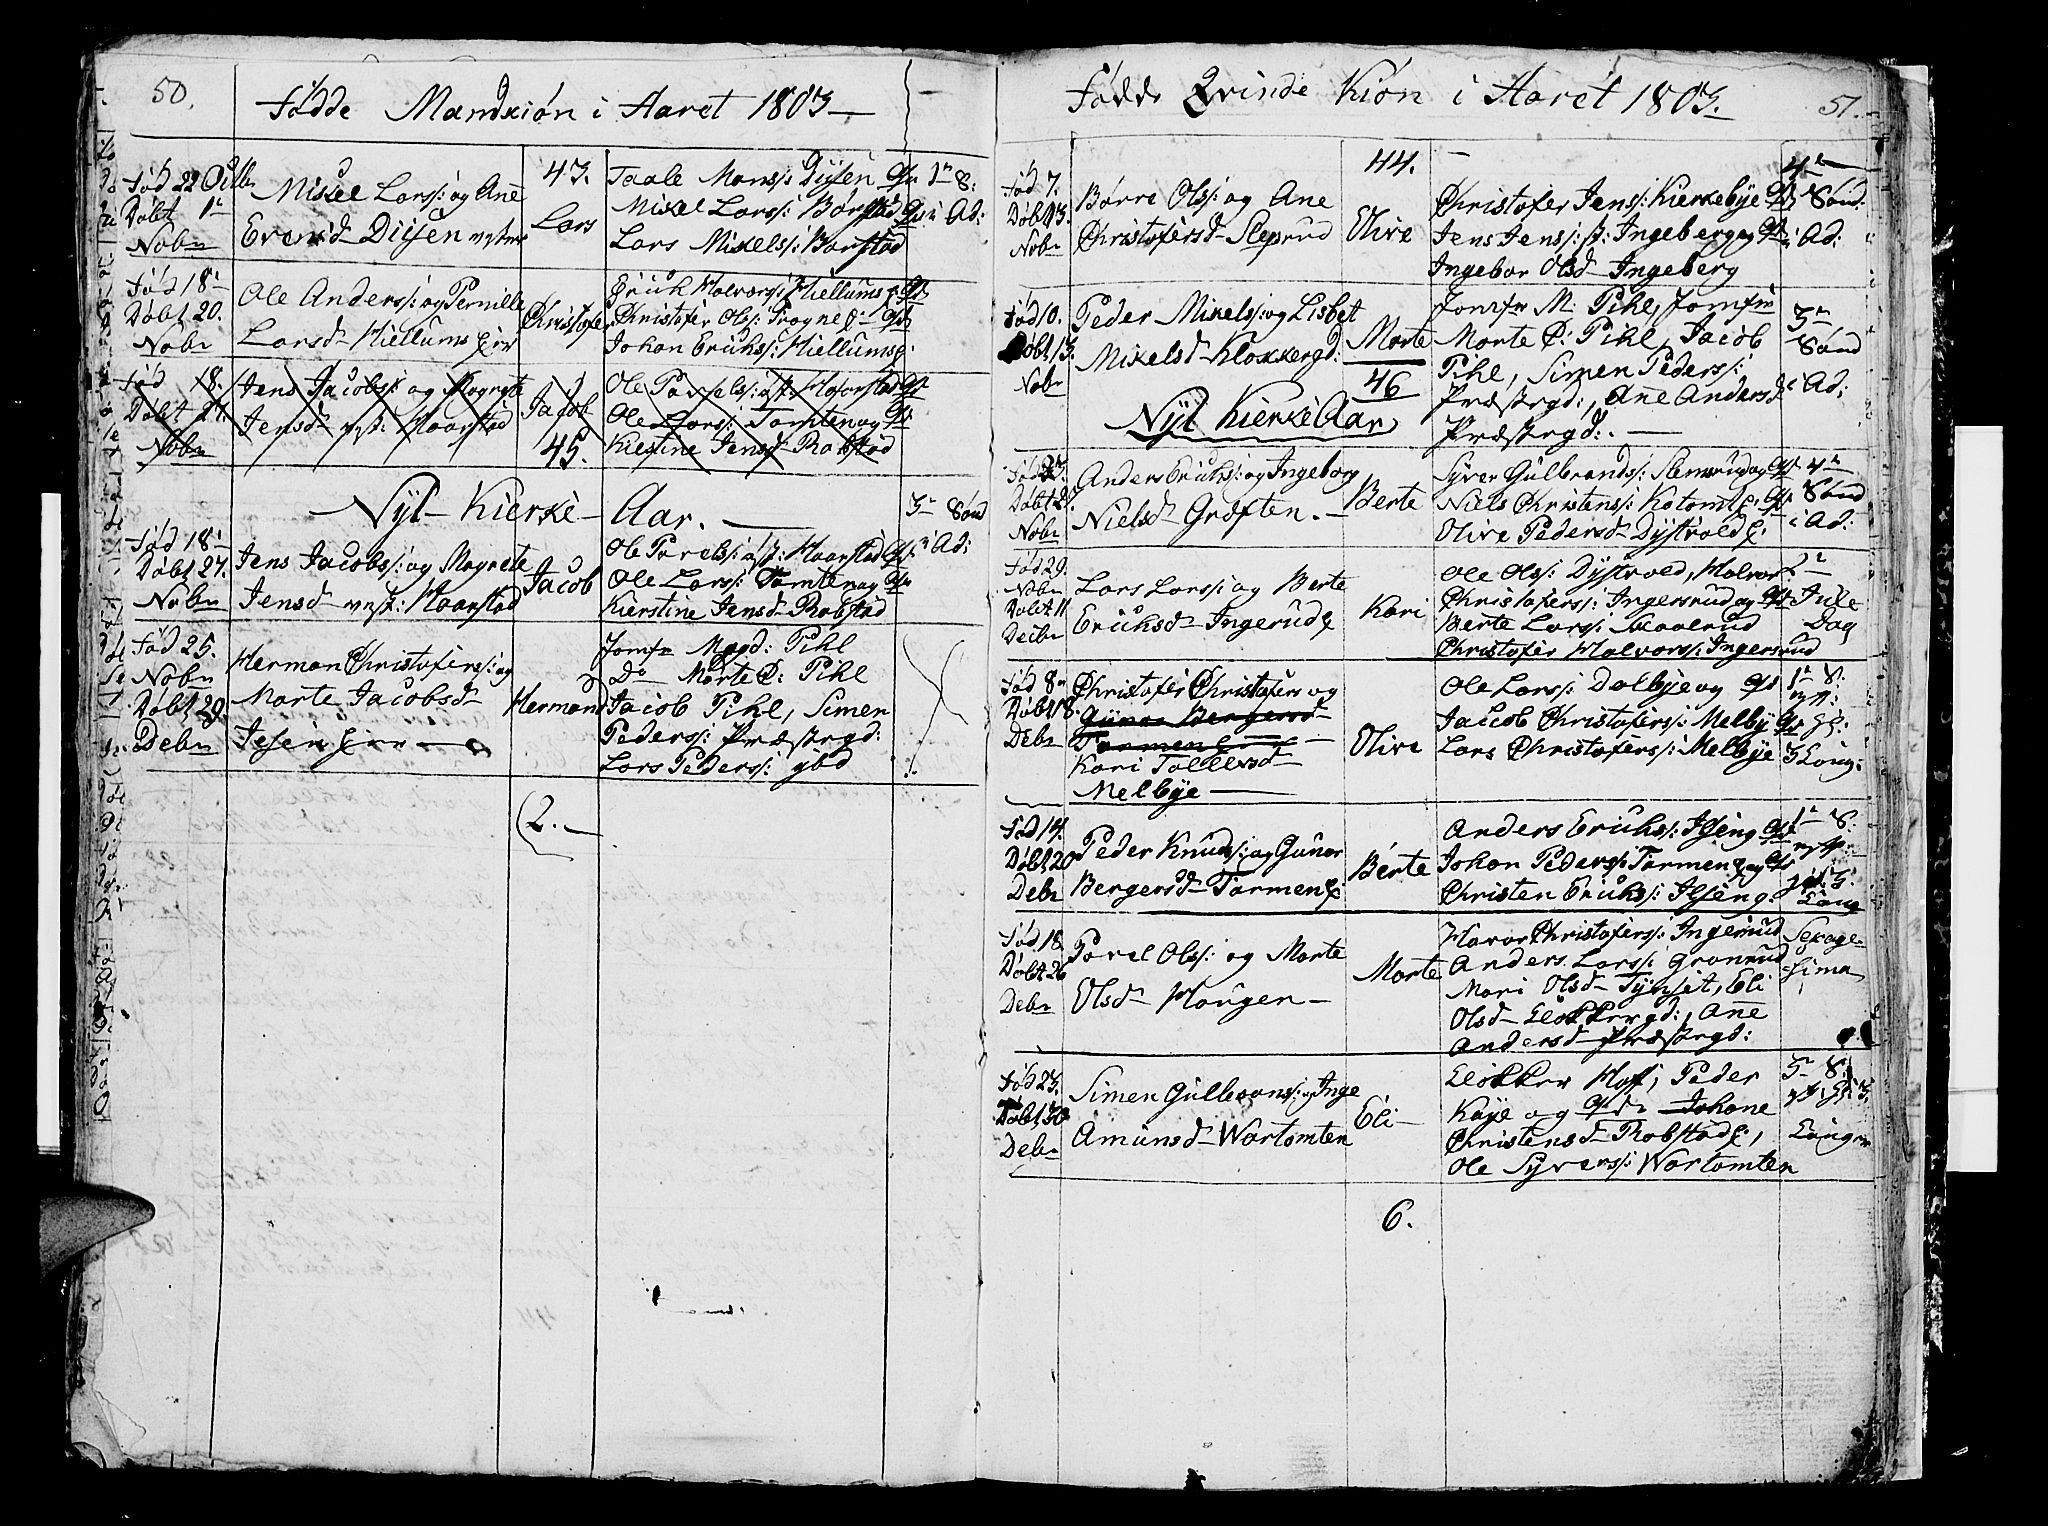 50.
Fødde Mandkiön i Aaret 1803
Fød 22 Octbr
Döbt 1n
Nobr
Mikel Lars: og Ane
Evensd Diisen
43.
Lars
Taale Mons: Diisen
Mikel Lars: Barstad
Lars Mikels: Barstad
1n S:
i Ad:
Fød 18
Döbt 20.
Nobr
Ole Anders: og Pernille
Larsd Hiellums
Christofer
Erich Halvors: Hiellums
Christofer Ols: Frogne
Johan Eriks: Hiellums
Fød 18.
Döbt 27.
Nobr
Jens Jacobs: og Magrete
Jensd vest: Haarstad
Jacob
45.
Ole Pavels: øst: Haarstad
Ole Lars: Tomten og
Kirstine Jensd Robstad
Nyt Kierke Aar.
Fød 18
Döbt 27.
Nobr
Jens Jacobs: og Magrete
Jensd vest: Haarstad
Jacob
Ole Pavels: øst: Haarstad
Ole Lars: Tomten og
Kierstine Jensd Robstad
3n Sönd
i Ad:
Fød 25.
Nobr
Döbt 29.
Debr
Herman Christofers: og
Marte Jacobsd
Herman
Jomfr Magd: Pihl
Do Marte C: Pihl
Jacob Pihl, Simen
Peders: Præstegd:
Lars Peders: ybd
2.
Fødde Qvinde Kiön i Aaret 1803.
51.
Fød 7.
Döbt 13.
Nobr
Börre Ols: og Ane
Christofersd Sleprud
44.
Olive
Christofer Jens: Kierkebye
Jens Jens: st: Ingeberg og
Ingebor Olsd Ingeberg
4n
Sönd.
i Ad:
Fød 10.
Döbt 13.
Nobr
Peder Mikels: og Lisbet
Mikelsd Klokkergd:
Marte
46
Jomfr M. Pihl, Jomfr
Marte C: Pihl, Jacob
Pihl, Simen Peders:
Præstegd:, Ane Andersd
Præstegd:.
3n
Sönd
i Ad:
Nyt Kierke Aar
Nobr
Anders Eriks: og Ingeborg
Nielsd Græften.
Berte
Syver Gulbrands: Slemsrud og
Niels Christens: Kolomt
Olive Pedersd Dystvold
4n
Sönd
i Ad:
Fød 29.
Nobr
Döbt 11
Debr
Lars Lars: og Berte
Eriksd Ingerud
Kari
Ole Ols: Dystvold, Halvor
Christofers: Ingersrud og
Berte Lars: Maalrud
Christofer Halvors: Ingersrud
2n
Jule
Dag
Fød 8n
Döbt 18.
Debr
Christofer Christofers og
Gunor Bergersd
Tormen
Kari Tollersd
Melbye
Olive
Ole Lars: Dalbye og
Jacob Christofers: Melby
Lars Christofers: Melbye
1n S:
Fød 14.
Döbt 20
Debr
Peder Knuds: og Gunor
Bergersd Tormen
Berte
Anders Eriks: Ilseng
Johan Peders: Tormen og
Christen Eriks: Ilseng.
1n S:
Fød 18.
Döbt 26
Debr
Pavel Ols: og Marte
Olsd Haugen
Marte
Havor Christofers: Ingerud
Anders Lars: Gronrud
Mari Olsd Tynset, Eli
Olsd Clokkergd:, Ane
Andersd Præstegd:
Sexage-
sima
Fød 23.
Döbt 30
Debr
Simen Gulleовns: og Inge
Amunsd Wortomten
Eli
Clokker Hoff, Peder
Kaye og Johane
Christensd Robstad,
Ole Syvers: Wortomten
6.